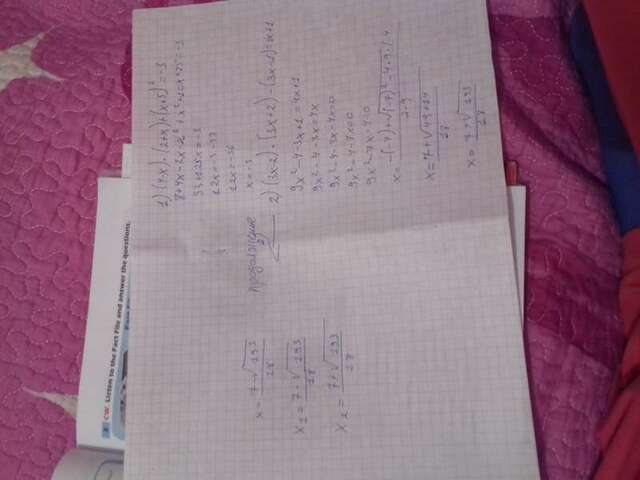 3 CW. Listen to the Fact File and answer the questions.
1) (4-x)·(2+x)+(x+5)²=-3
8+4x-2x-x²+x²+10x+25=-3
33+12x=-3
12x=-3-33
12x=-36
x=-3
продолжение
2) (3x-2)·(3x+2)-(3x-1)=4x+1
9x²-4-3x+1=4x+1
9x²-4-3x=4x
9x²-4-3x-4x=0
9x²-4-7x=0
9x²-7x-4=0
x=-(-7)+√(-7)²-4·9·(-4
2·9
x=7+√49+144
18
x=7+√193
18
x=7+√193
18
x₁=7-√193
18
x₂=7+√193
18